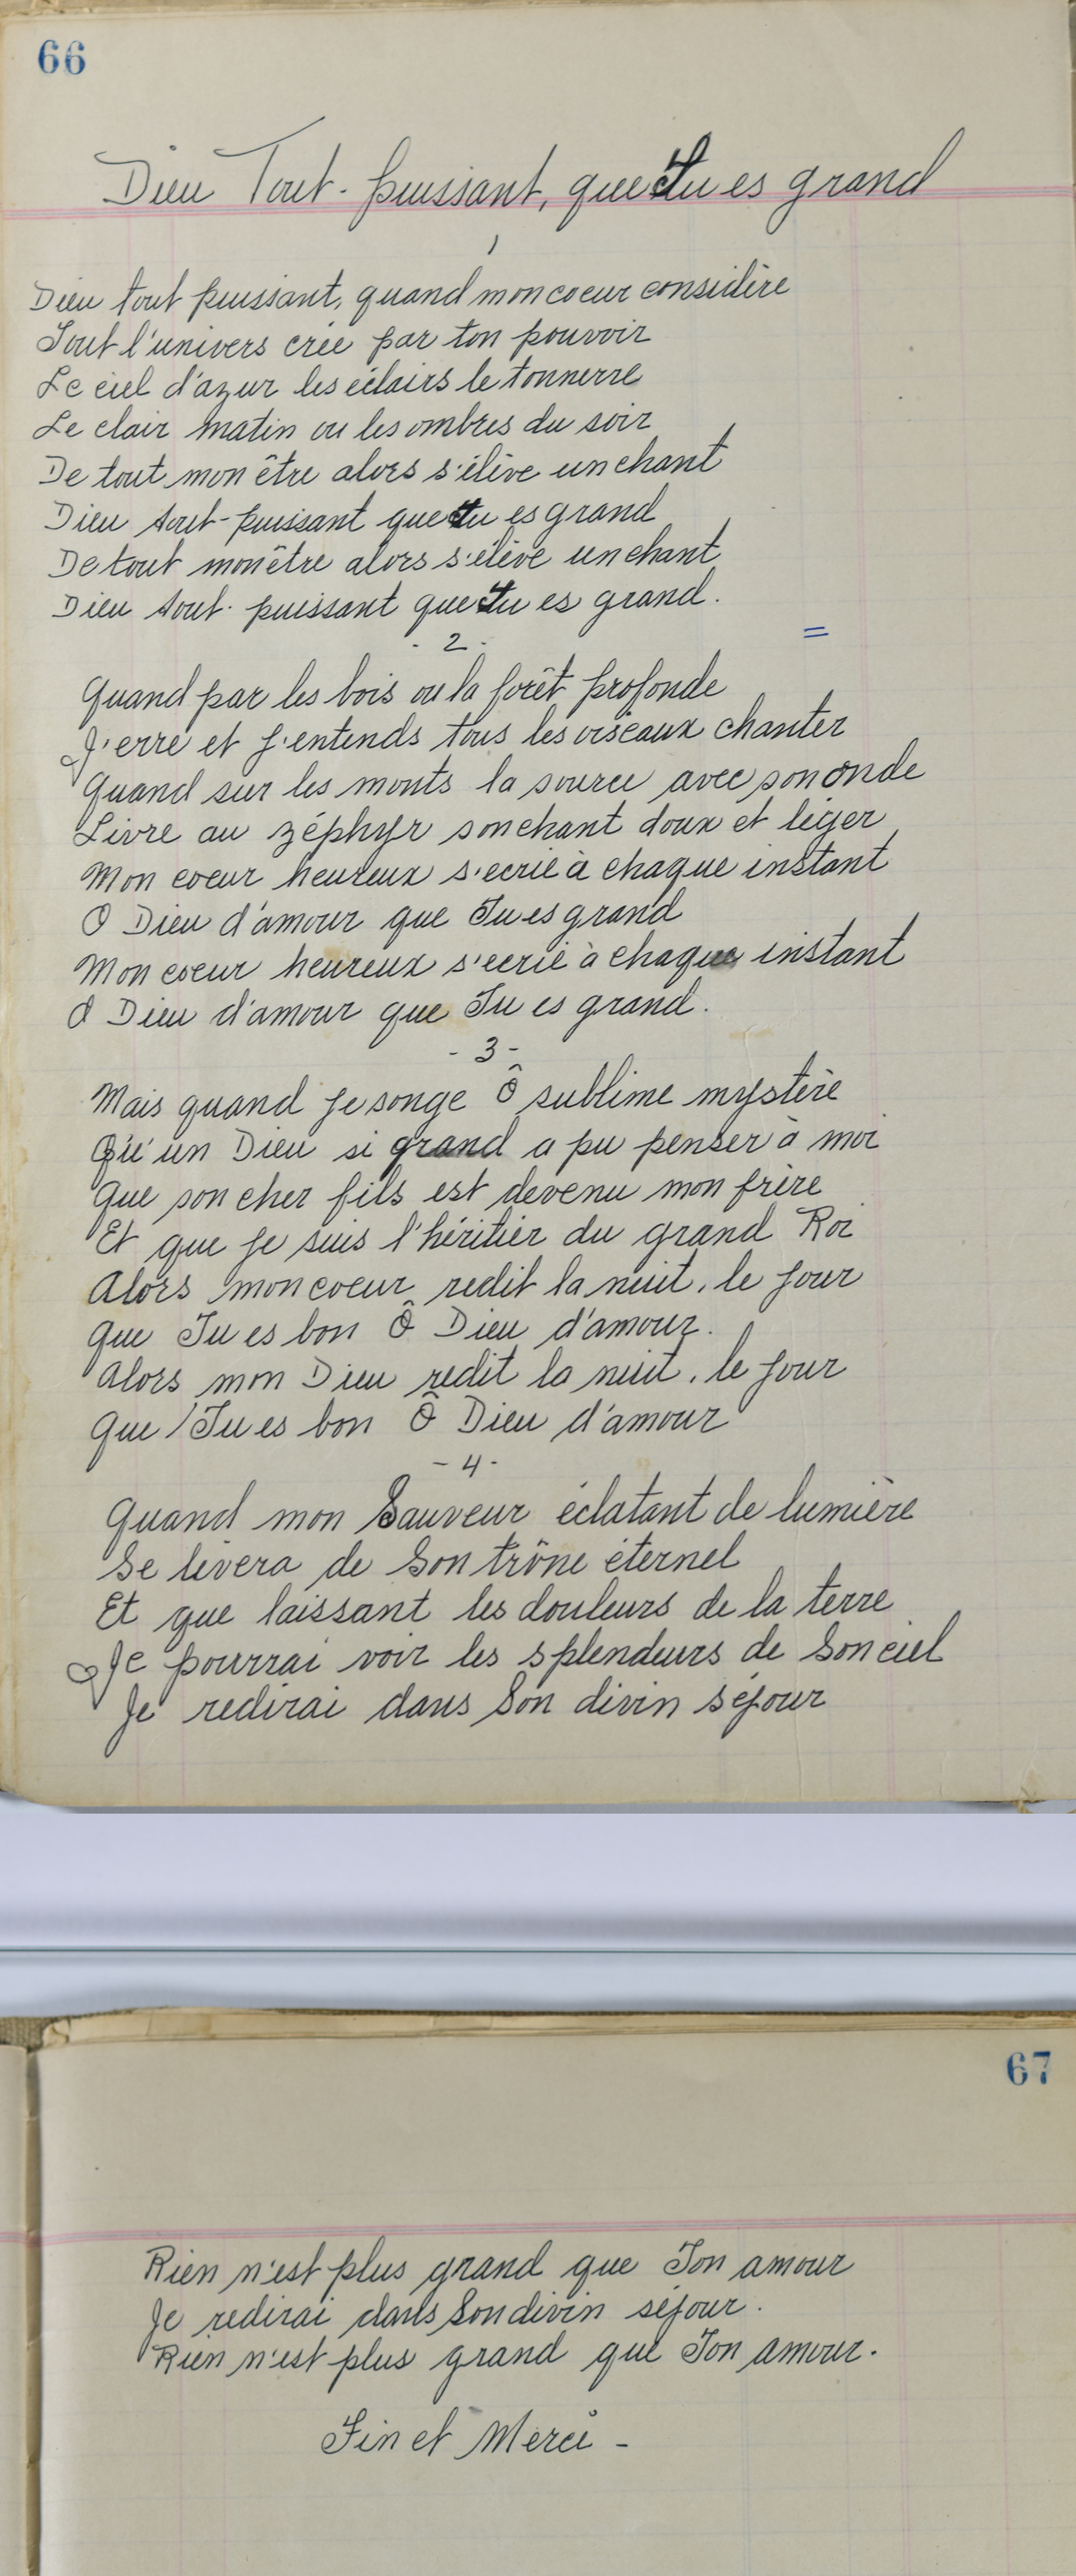 66
Dieu Tout-puissant, que Tu es grand
1
Dieu tout puissant, quand mon coeur considère
Tout l'univers crée par ton pouvoir
Le ciel d'azur les éclairs le tonnerre
Le clair matin ou les ombres du soir
De tout mon être alors s'élève un chant
Dieu tout-puissant que tu es grand
De tout mon être alors s'élève un chant
Dieu tout-puissant que Tu es grand.
=
- 2 -
Quand par les bois ou la forêt profonde
J'erre et j'entends tous les oiseaux chanter
Quand sur les monts la source avec son onde
Livre au zéphyr son chant doux et léger
Mon coeur heureux s'ecrie à chaque instant
O Dieu d'amour que Tu es grand
Mon coeur heureux s'ecrie à chaque instant
O Dieu d'amour que Tu es grand.
- 3 -
Mais quand je songe Ô sublime mystère
Qu'un Dieu si grand a pu penser à moi
Que son cher fils est devenu mon frère
Et que je suis l'héritier du grand Roi
Alors mon coeur redit la nuit, le jour
Que Tu es bon Ô Dieu d'amour.
Alors mon Dieu redit la nuit, le jour
Que Tu es bon Ô Dieu d'amour
- 4 -
Quand mon Sauveur éclatant de lumière
Se lèvera de Son trône éternel
Et que laissant les douleurs de la terre
Je pourrai voir les splendeurs de Son ciel
Je redirai dans Son divin séjour
67
Rien n'est plus grand que Ton amour
Je redirai dans Son divin séjour.
Rien n'est plus grand que Ton amour.
Fin et Merci -